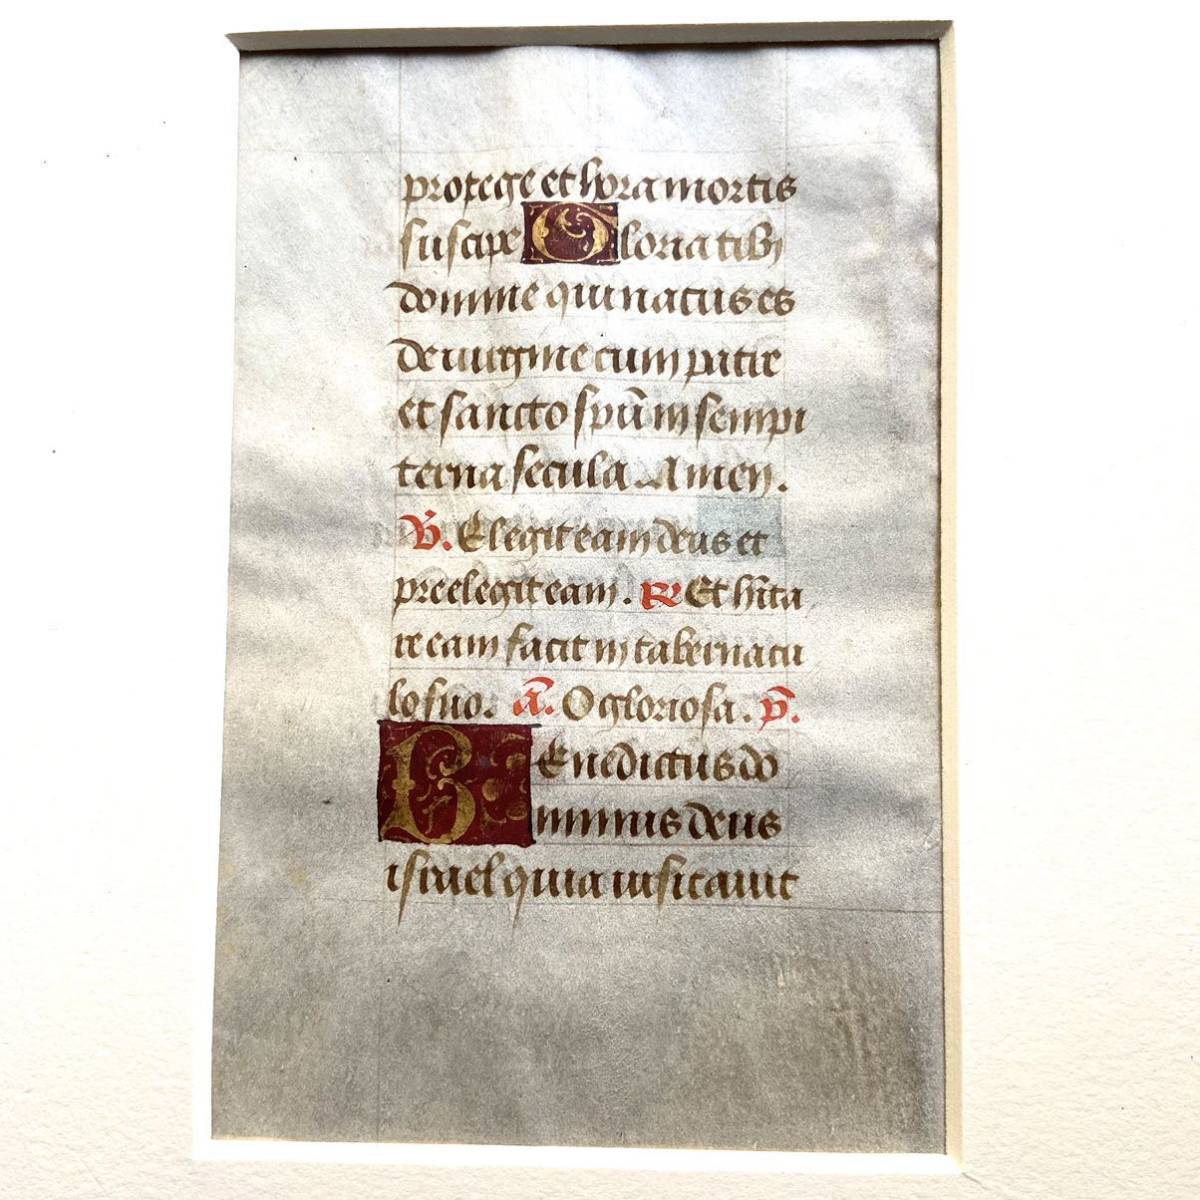 protege et hora mortis
suscipe Gloria tibi
domine qui natus es
de uirgine cum patre
et sancto spū in sempi
terna secula Amen.
V̄. Elegit eam deus et
preelegit eam. R Et hīta
re eam facit in tabernacu
lo suo. ā. O gloriosa. p̄.
Benedictus do
minus deus
israel quia uisitauit